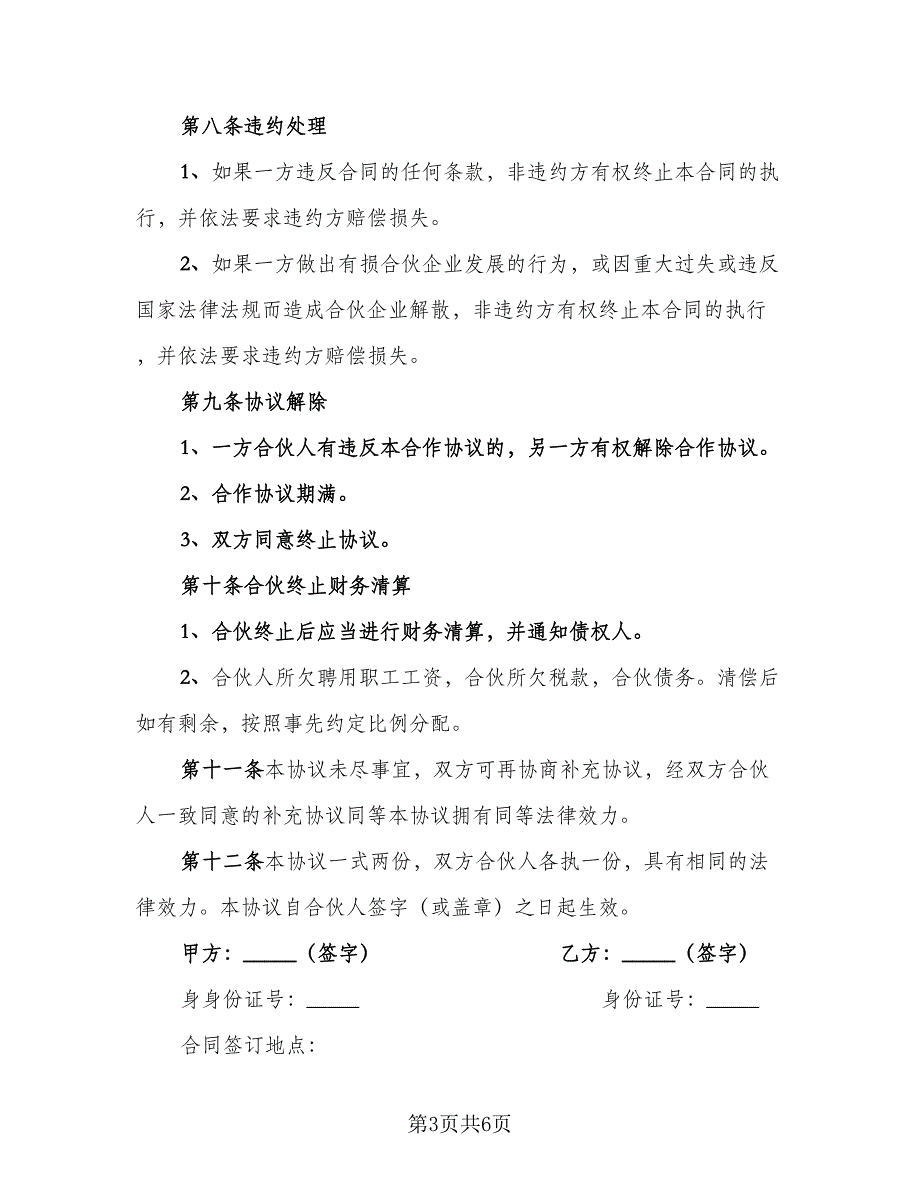 第八条违约处理
1、如果一方违反合同的任何条款，非违约方有权终止本合同的执
行，并依法要求违约方赔偿损失。
2、如果一方做出有损合伙企业发展的行为，或因重大过失或违反
国家法律法规而造成合伙企业解散，非违约方有权终止本合同的执行
，并依法要求违约方赔偿损失。
第九条协议解除
1、一方合伙人有违反本合作协议的，另一方有权解除合作协议。
2、合作协议期满。
3、双方同意终止协议。
第十条合伙终止财务清算
1、合伙终止后应当进行财务清算，并通知债权人。
2、合伙人所欠聘用职工工资，合伙所欠税款，合伙债务。清偿后
如有剩余，按照事先约定比例分配。
第十一条本协议未尽事宜，双方可再协商补充协议，经双方合伙
人一致同意的补充协议同等本协议拥有同等法律效力。
第十二条本协议一式两份，双方合伙人各执一份，具有相同的法
律效力。本协议自合伙人签字（或盖章）之日起生效。
甲方：_____（签字） 乙方：_____（签字）
身身份证号：_____ 身份证号：_____
合同签订地点：
第3页共6页